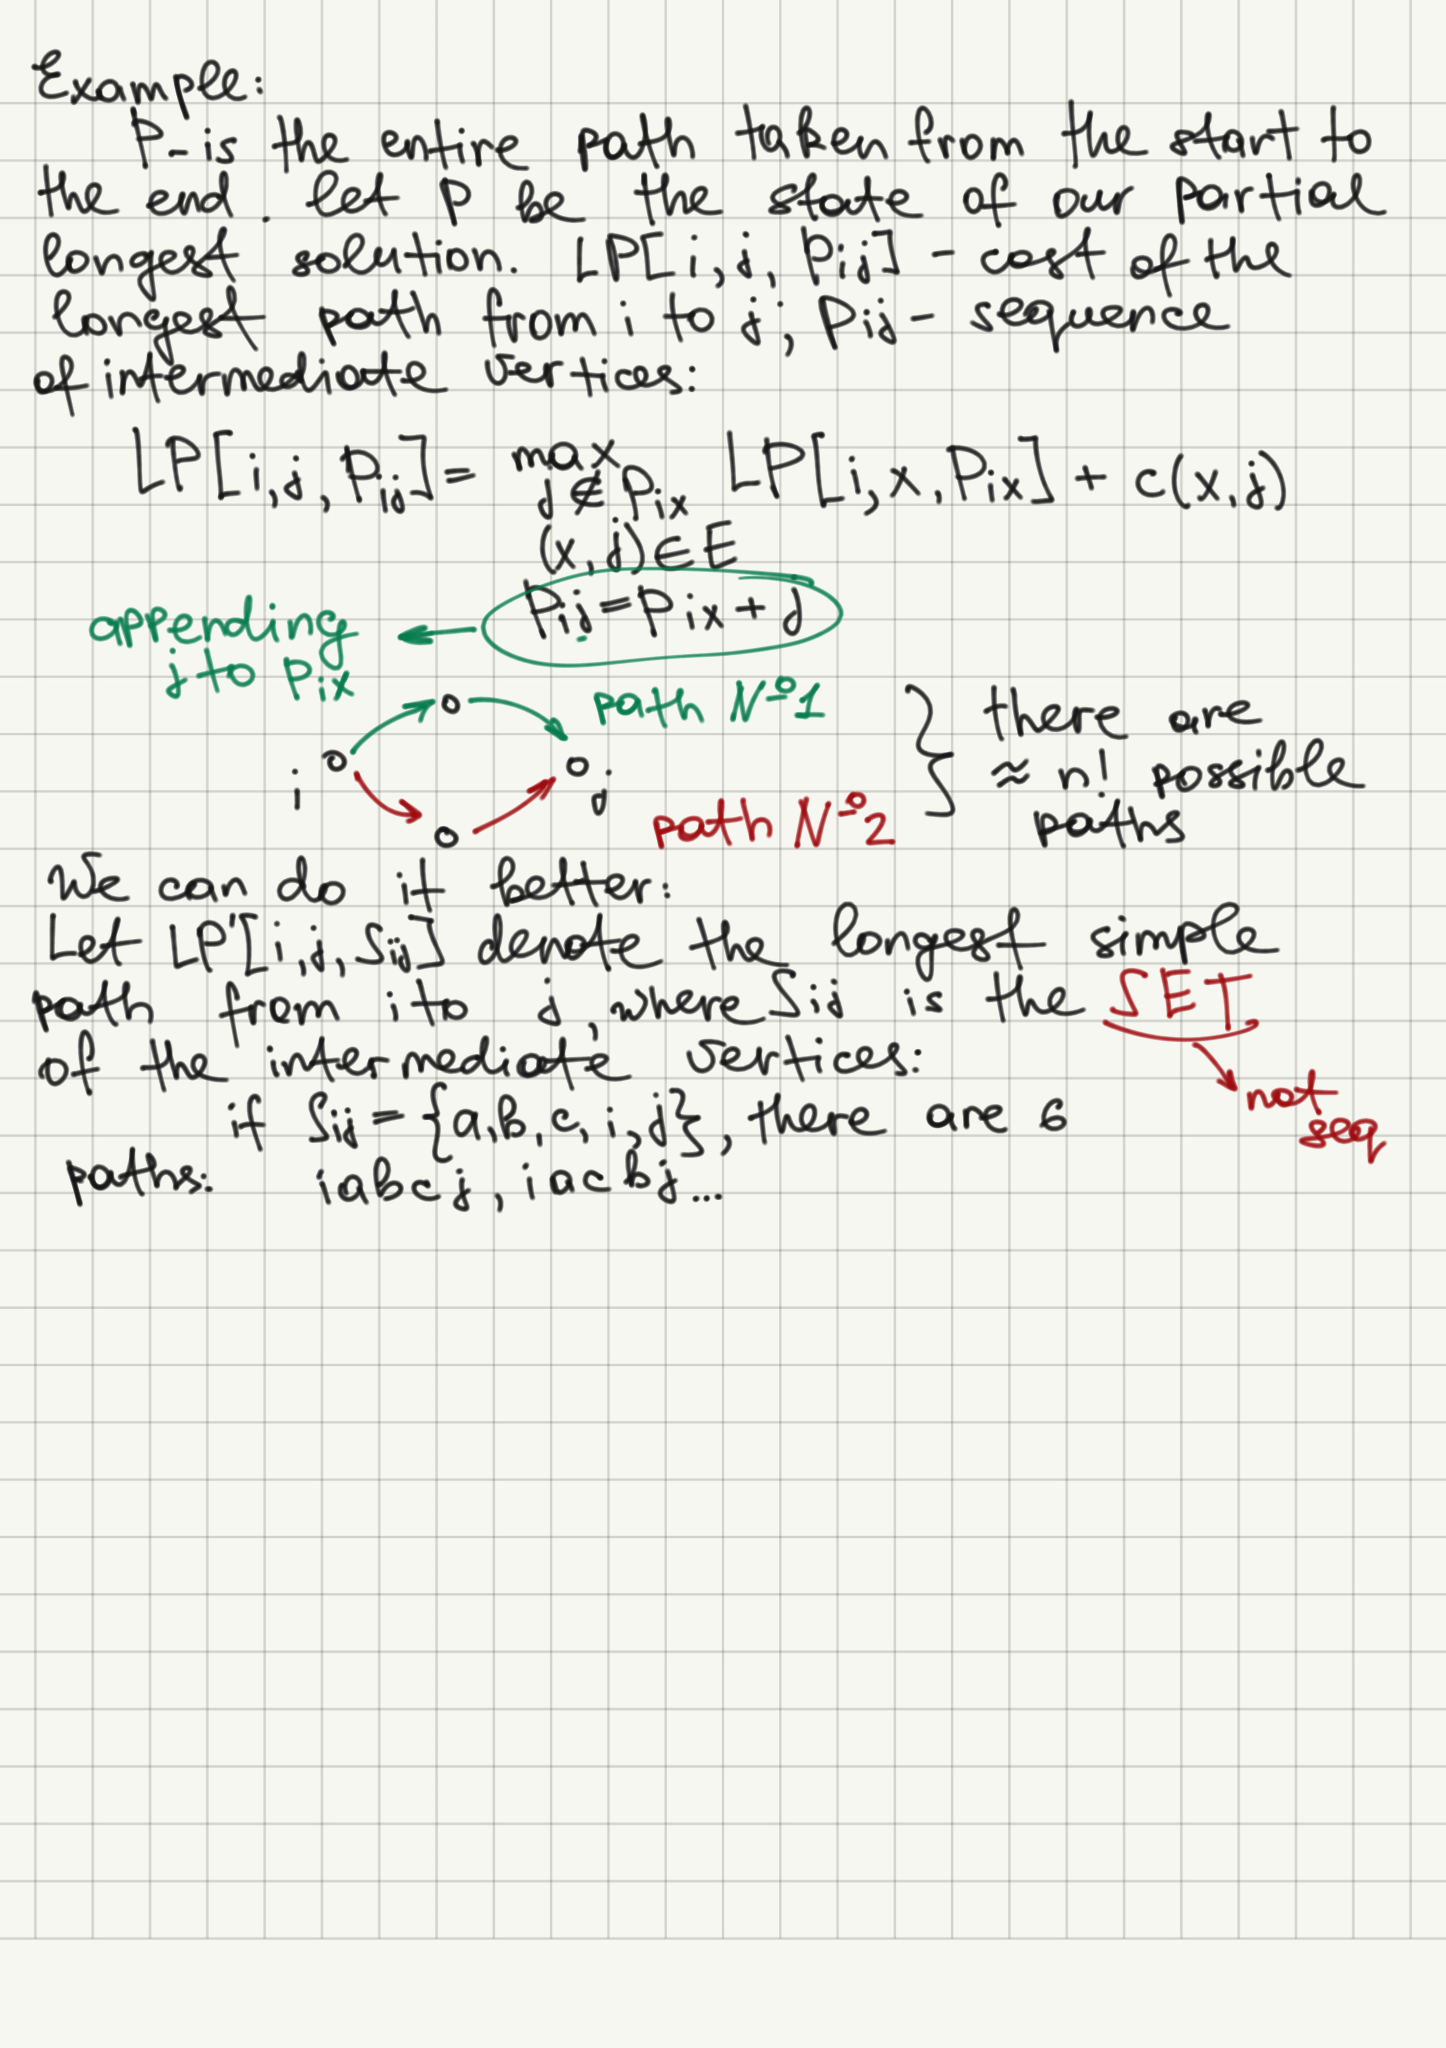 Example:
P- is the entire path taken from the start to
the end. let P be the state of our partial
longest solution. LP[i, j, Pij] - cost of the
longest path from i to j; Pij - sequence
of intermediate vertices:
LP[i, j, Pij] = max LP[i, x, Pix] + c(x, j)
j ∉ Pix
(x, j) ∈ E
Pij = Pix + j
appending
j to Pix
path №1
i
j
path №2
there are
≈ n! possible
paths
We can do it better:
Let LP'[i, j, Sij] denote the longest simple
path from i to j, where Sij is the SET
of the intermediate vertices:
not
seq
if Sij = {a, b, c, i, j}, there are 6
paths: iabcj, iacbj...